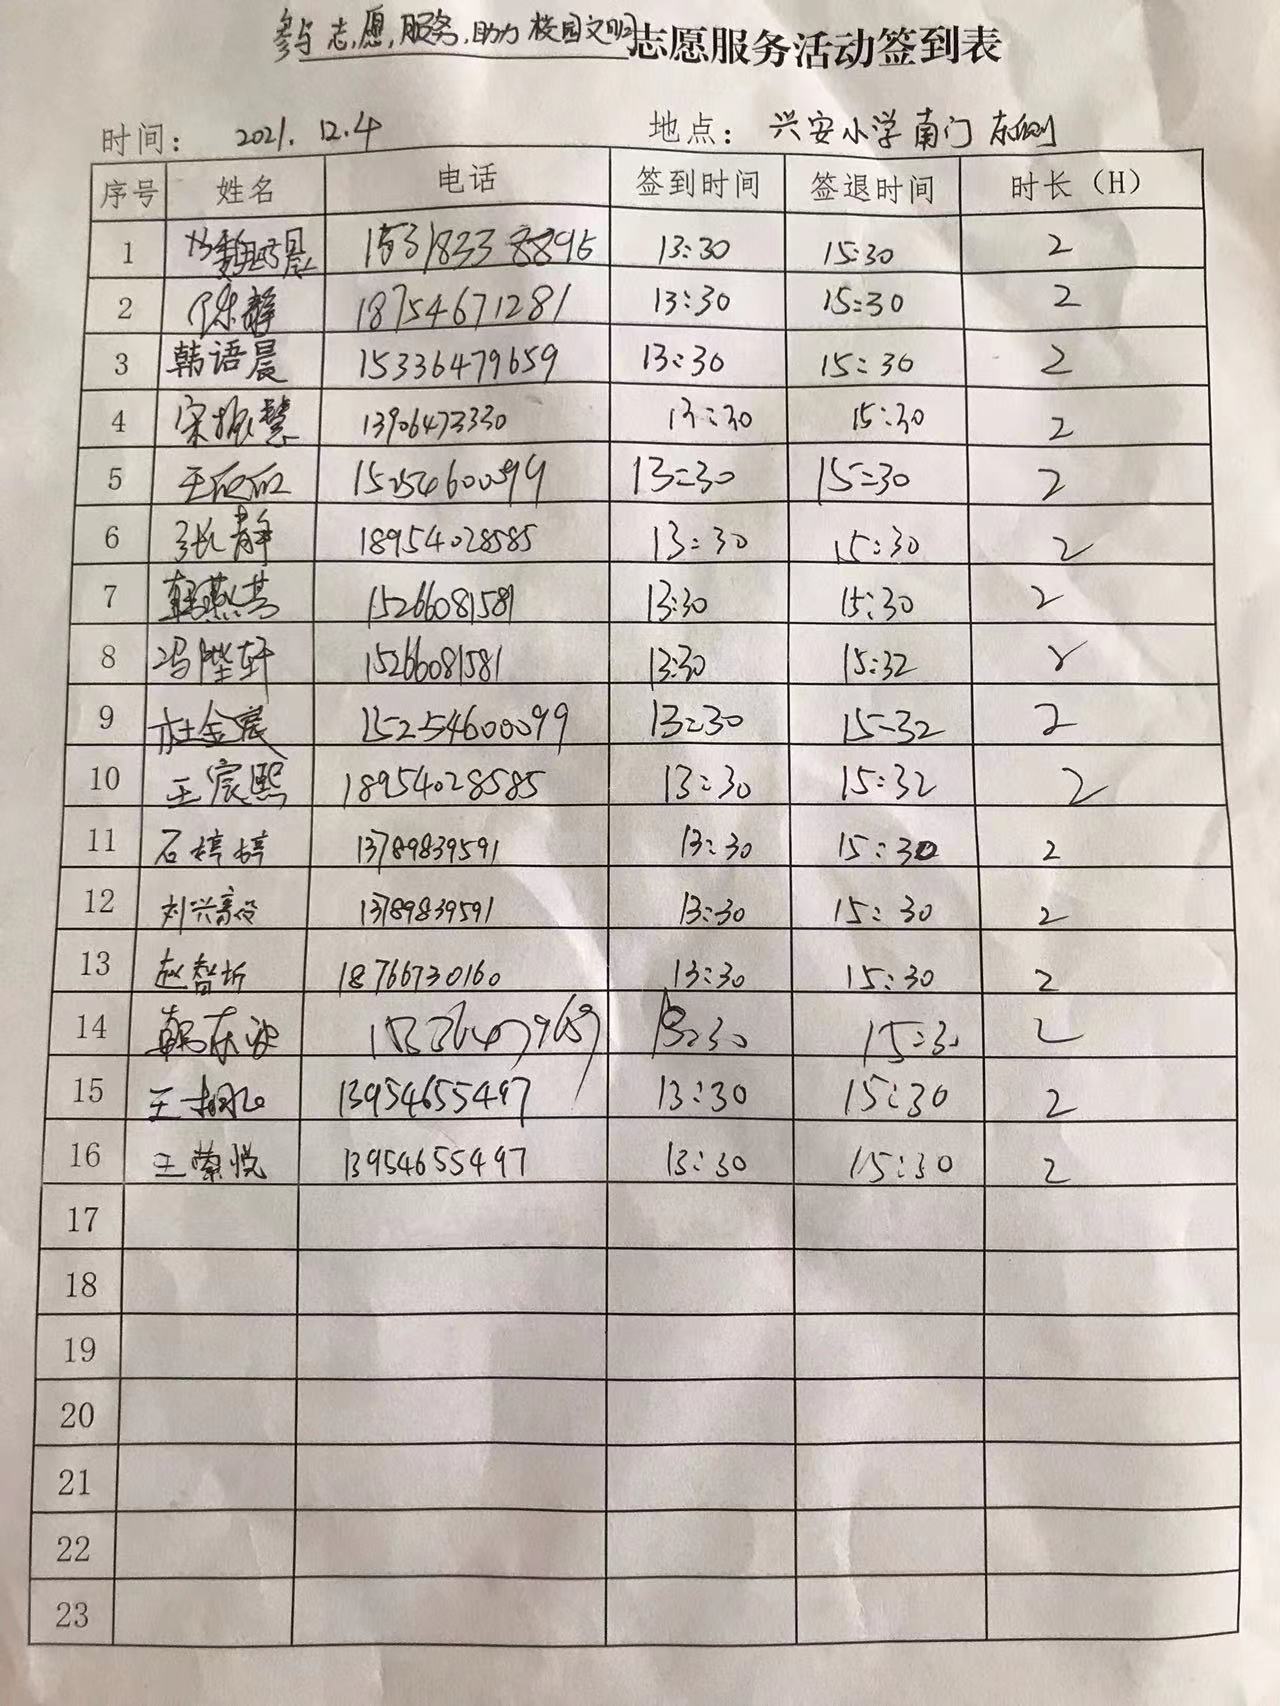 参与志愿服务,助力校园文明志愿服务活动签到表
时间: 2021.12.4 地点: 兴安小学南门东侧
序号 姓名 电话 签到时间 签退时间 时长(H)
1 13:30 15:30 2
2 陈静 18754671281 13:30 15:30 2
3 韩语晨 15336479659 13:30 15:30 2
4 宋振慧 13906473330 13:30 15:30 2
5 15254600099 13:30 15:30 2
6 张静 18954028585 13:30 15:30 2
7 15266081581 13:30 15:30 2
8 15266081581 13:30 15:32 2
9 杜金宸 15254600099 13:30 15:32 2
10 王宸熙 18954028585 13:30 15:32 2
11 石婷婷 13789839591 13:30 15:30 2
12 13789839591 13:30 15:30 2
13 赵智圻 18766730160 13:30 15:30 2
14 15336479659 13:30 15:30 2
15 13954655497 13:30 15:30 2
16 王萦悦 13954655497 13:30 15:30 2
17
18
19
20
21
22
23